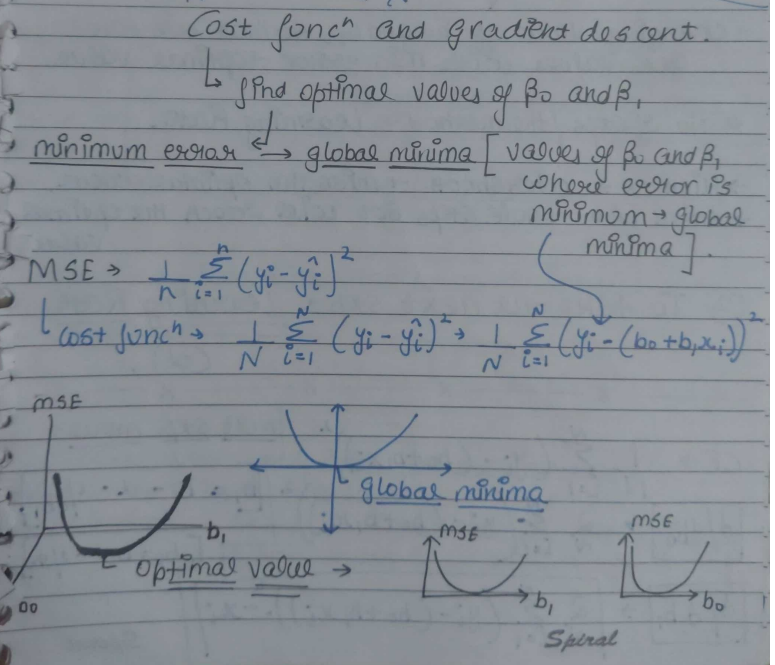 Cost funcⁿ and gradient descent.
↳ find optimal values of β0 and β1
minimum error → global minima [values of β0 and β1
where error is
minimum → global
minima].
MSE → 1/n Σ i=1 n (yi - ŷi)²
cost funcⁿ → 1/N Σ i=1 N (yi - ŷi)² → 1/N Σ i=1 N (yi - (b0 + b1xi))²
MSE
global minima
b1
optimal value →
MSE
b1
MSE
b0
Spiral